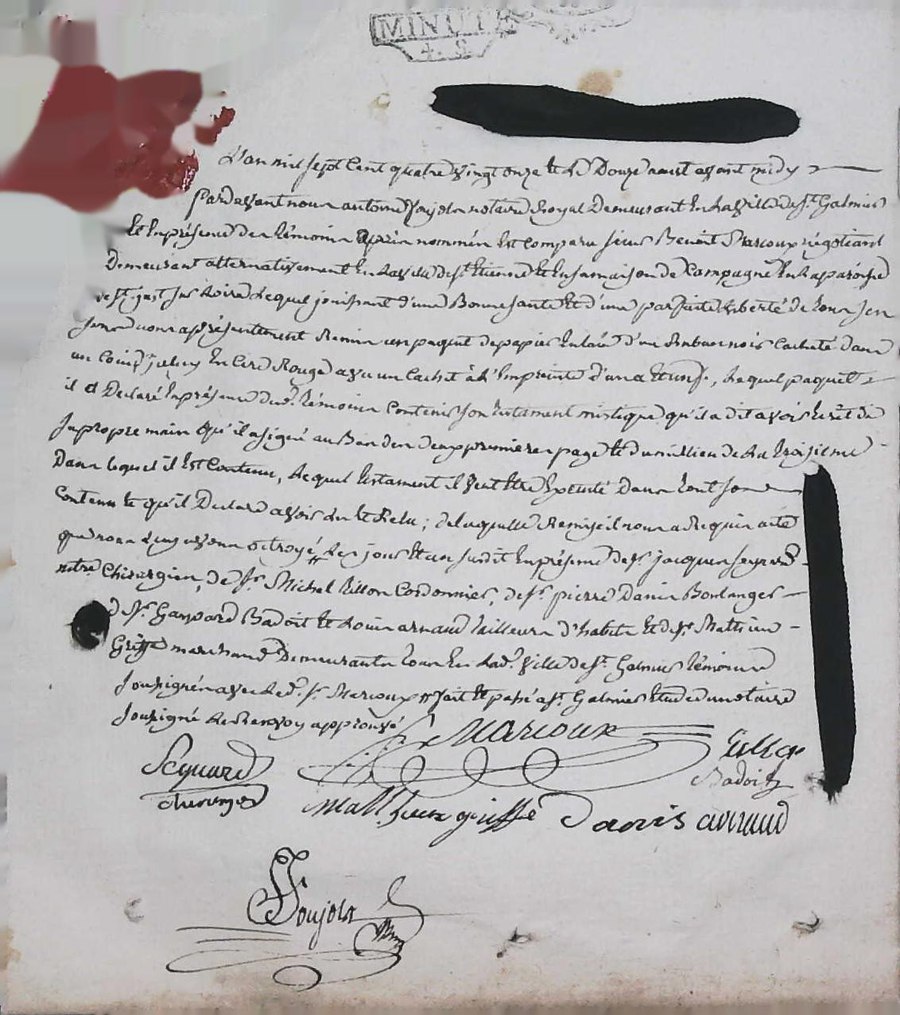 MINUTE
4. S.
L'an mil sept cent quatre vingt onze et le Douze aoust avant midy
pardevant nous antoine notaire Royal Demeurant En la ville de st. Galmier
Et En présence des témoins après nommés Est comparu sieur Benoit Marcoux négotiant
Demeurant alternativement En la ville de st. Etienne Et En sa maison de Campagne En la paroisse
de st. just sur Loire Lequel jouissant d'une Bonne santé Et d'une parfaite Liberté de tous sen
sens nous a présentement Remis un paquet de papier cacheté dans
un En Cire Rouge avec un Cachet à L'Empreinte d'une , Lequel paquet
il a Declaré En présence desd. témoins Contenir son testament mistique qu'il a dit avoir Ecrit de
sa propre main qu'il a signé au Bas des deux premieres pages Et du milieu de La troisieme
Dans lequel il Est Contenu, Lequel testament il veut Etre Executé Dans tout son
Contenu Et qu'il Declare avoir Lu Et Relu ; de laquelle Remise il nous a Requis acte
que nous Luy avons octroyé, Les jour Et an susdit En présence de sr. jacques
Chirurgien, de sr. Michel Cordonnier, de sr. pierre Danis Boulanger
de srs. Gaspard Badoit Et Louis arnaud tailleurs d'habits Et de sr. Mathieu
marchand Demeurants tous En Lad. ville de st. Galmier témoins
soussignés avec Led. sr. Marcoux fait Et passé a st. Galmier Etude du notaire
soussigné Le Renvoy approuvé
Marcoux
Badoit
Danis arnaud